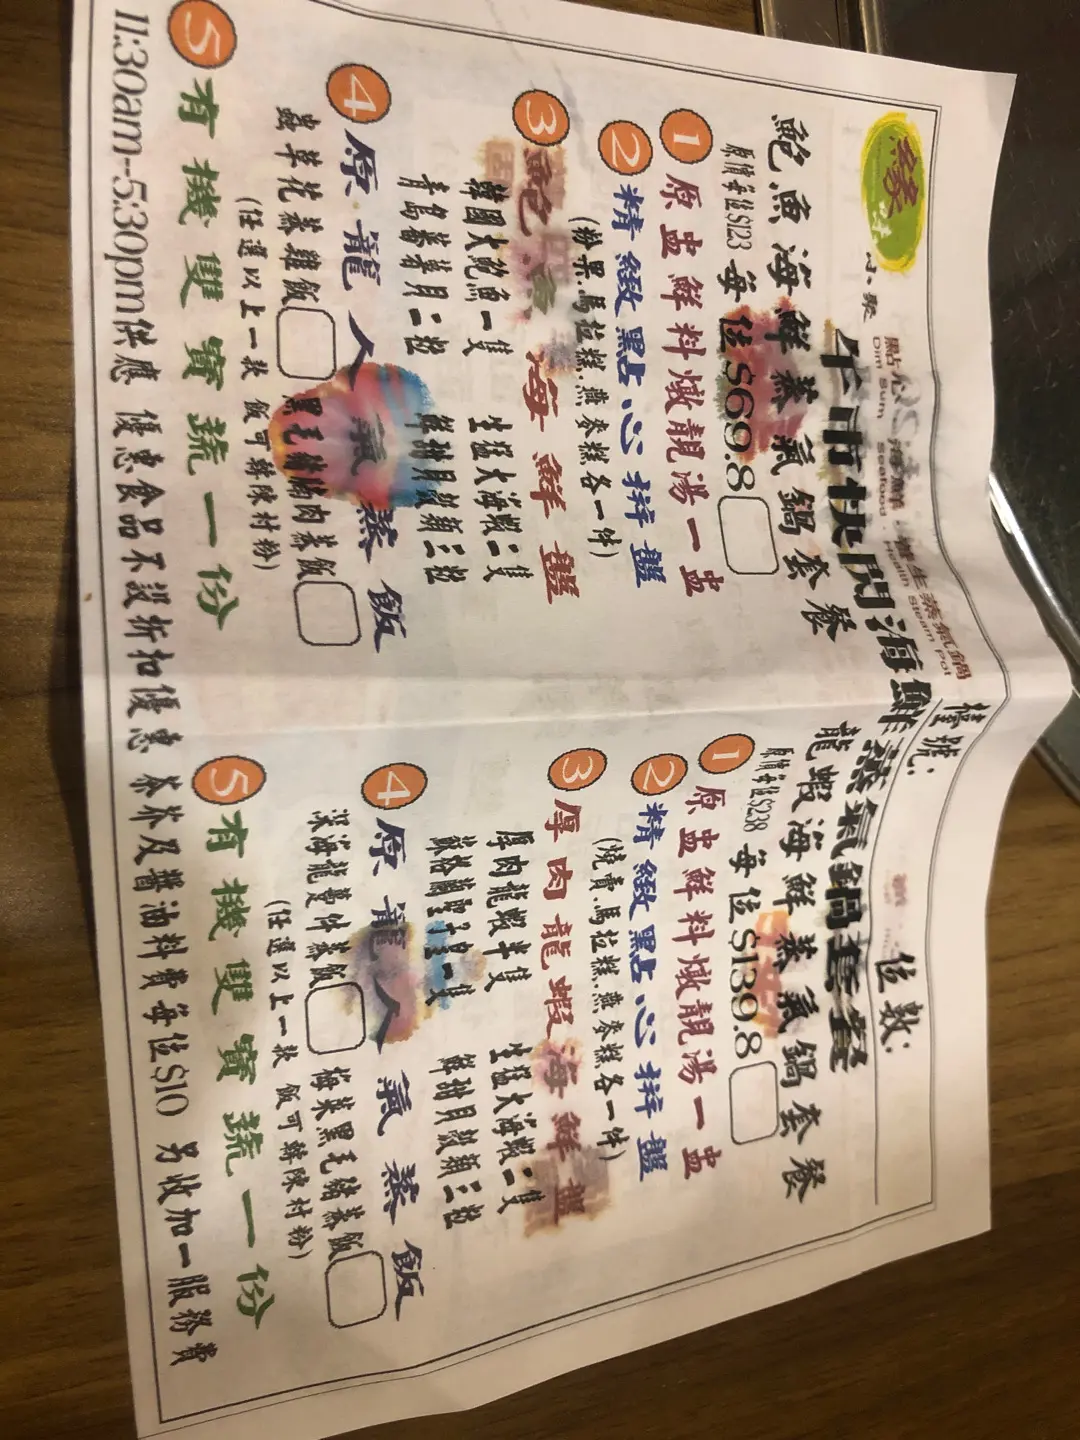 緣
小聚
點心 海鮮 養生蒸氣鍋
Dim Sum Seafood Health Steam Pot
檯號:
位數:
午市快閃海鮮蒸氣鍋套餐
鮑魚海鮮蒸氣鍋套餐
原價每位$123 每位$69.8
1 原盅鮮料燉靚湯一盅
2 精緻點心拼盤
(粉果.馬拉糕.燕麥糕各一件)
3 海鮮盤
韓國大鮑魚一隻 生猛大海蝦二隻
青島蕃薯貝二粒 鮮甜貝級類三粒
4 原籠人氣蒸飯
蟲草花蒸雞飯 黑毛豬腩肉蒸飯
(任選以上一款 飯可轉陳村粉)
5 有機雙寶蔬一份
龍蝦海鮮蒸氣鍋套餐
原價每位$238 每位$139.8
1 原盅鮮料燉靚湯一盅
2 精緻點心拼盤
(燒賣.馬拉糕.燕麥糕各一件)
3 厚肉龍蝦海鮮盤
厚肉龍蝦半隻 生猛大海蝦二隻
蘇格蘭聖子皇一隻 鮮甜貝級類三粒
4 原籠人氣蒸飯
深海龍躉件蒸飯 梅菜黑毛豬蒸飯
(任選以上一款 飯可轉陳村粉)
5 有機雙寶蔬一份
11:30am-5:30pm供應 優惠食品不設折扣優惠 茶芥及醬油料費每位$10 另收加一服務費